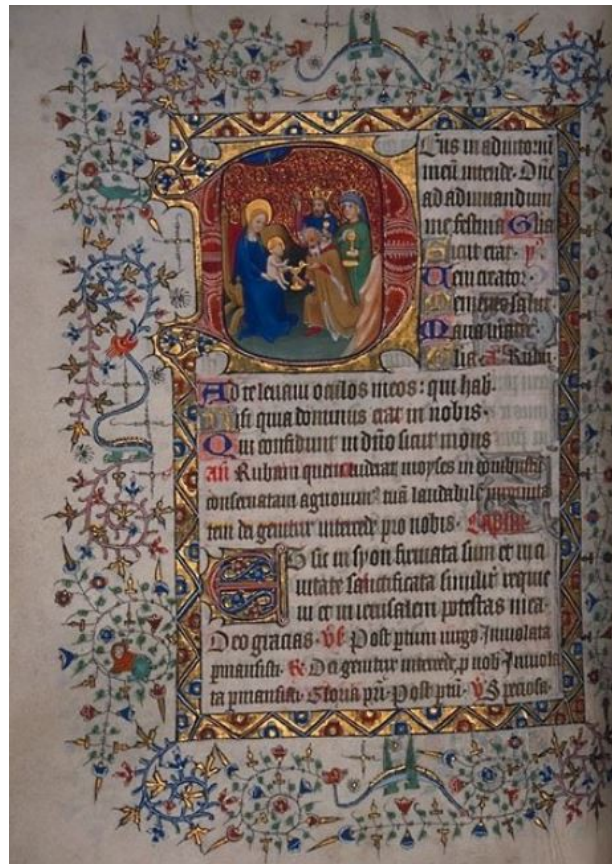 Eus in adiutoriu
meu intende. Dne
ad adiuuandum
me festina Glia
Sicut erat. ps
Ueni creator.
Memento salut
Maria mater
Glia. a. Rubu.
Ad te leuaui oculos meos: qui hab.
Nisi quia dominus erat in nobis.
Qui confidunt in dno sicut mons
an Rubum quem uiderat moyses in combustu
conseruatam agnouim tua laudabile uirginita
tem dei genitrix intercede pro nobis. Capitlm
Et sic in syon firmata sum et in ci
uitate sanctificata similir requie
ui et in ierusalem potestas mea.
Deo gracias. Post ptum uirgo Inuiolata
pmansisti. R. Dei genitrix intercede p nob Inuiola
ta pmansisti. Gloria pri. Post ptu. V Speciosa.